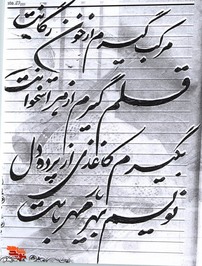 مرکب گیرم از خون رگانت
قلم گیرم از هر استخوانت
بگیرم کاغذی از پرده دل
نویسم بهر یار مهربانت